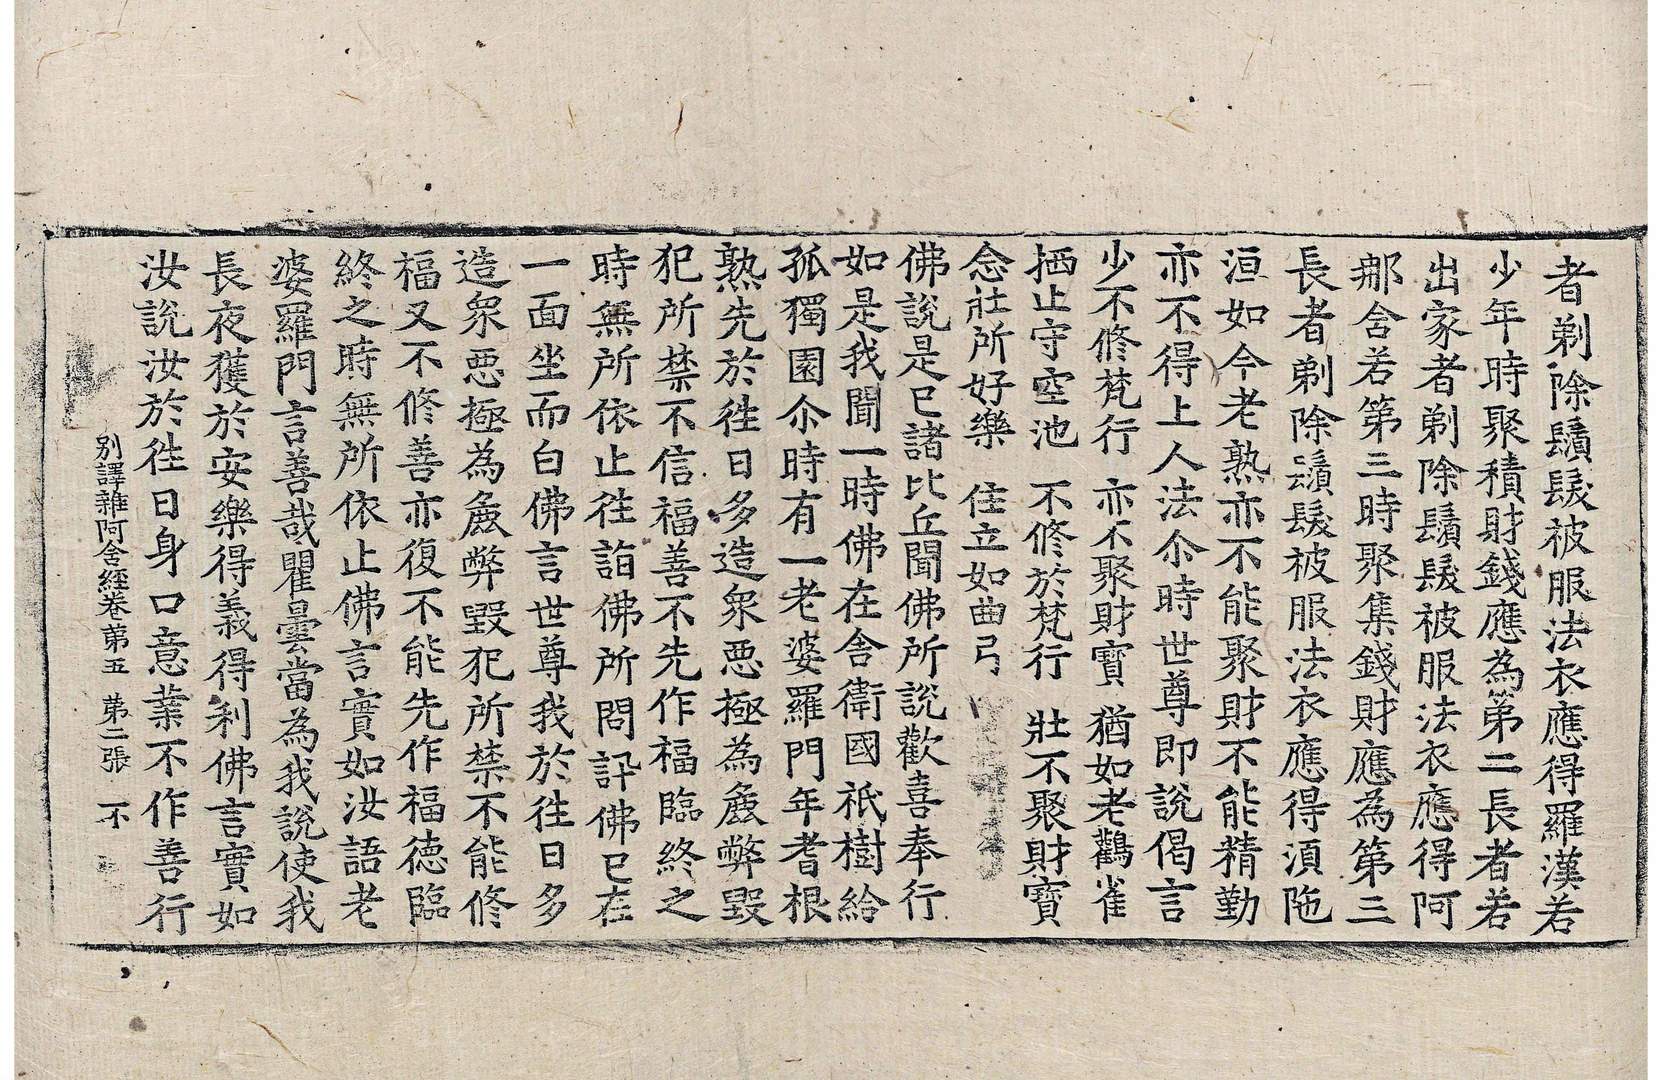 者剃除鬚髮被服法衣應得羅漢若
少年時聚積財錢應為第二長者若
出家者剃除鬚髮被服法衣應得阿
那舍若第三時聚集錢財應為第三
長者剃除鬚髮被服法衣應得湏陁
洹如今老熟亦不能聚財不能精勤
亦不得上人法尒時世尊即說偈言
少不修梵行　亦不聚財寳　猶如老鸛雀
捿止守空池　不修於梵行　壯不聚財寳
念壯所好樂　住立如曲弓
佛說是已諸比丘聞佛所說歡喜奉行
如是我聞一時佛在舍衛國祇樹給
孤獨園尒時有一老婆羅門年耆根
熟先於徃日多造衆惡極為麁弊毀
犯所禁不信福善不先作福臨終之
時無所依止徃詣佛所問訊佛已在
一面坐而白佛言世尊我於徃日多
造衆惡極為麁弊毀犯所禁不能修
福又不修善亦復不能先作福德臨
終之時無所依止佛言實如汝語老
婆羅門言善哉瞿曇當為我說使我
長夜獲於安樂得義得利佛言實如
汝說汝於徃日身口意業不作善行
別譯雜阿含經卷第五　第二張　不